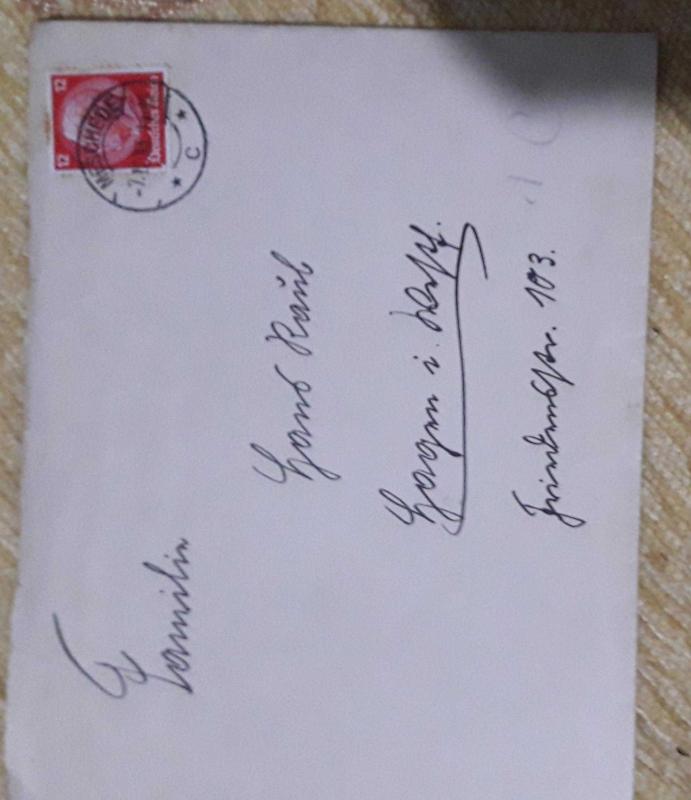 12
12
Deutsches Reich
MESCHEDE
-7.1
* C *
Familie
Hans Raub
Hagen i. Westf.
Friedensstr. 103.